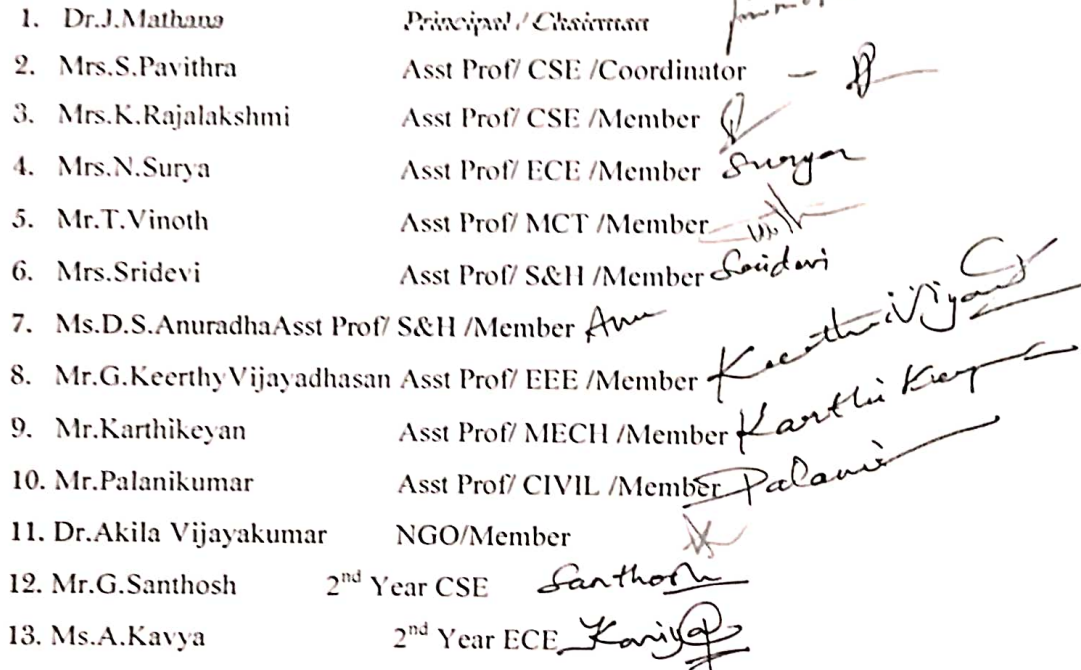 1. Dr.J.Mathana Principal / Chairman
2. Mrs.S.Pavithra Asst Prof/ CSE /Coordinator –
3. Mrs.K.Rajalakshmi Asst Prof/ CSE /Member
4. Mrs.N.Surya Asst Prof/ ECE /Member Surya
5. Mr.T.Vinoth Asst Prof/ MCT /Member
6. Mrs.Sridevi Asst Prof/ S&H /Member Sridevi
7. Ms.D.S.AnuradhaAsst Prof/ S&H /Member Anu
8. Mr.G.Keerthy Vijayadhasan Asst Prof/ EEE /Member
9. Mr.Karthikeyan Asst Prof/ MECH /Member
10. Mr.Palanikumar Asst Prof/ CIVIL /Member Palani
11. Dr.Akila Vijayakumar NGO/Member
12. Mr.G.Santhosh 2nd Year CSE Santhosh
13. Ms.A.Kavya 2nd Year ECE